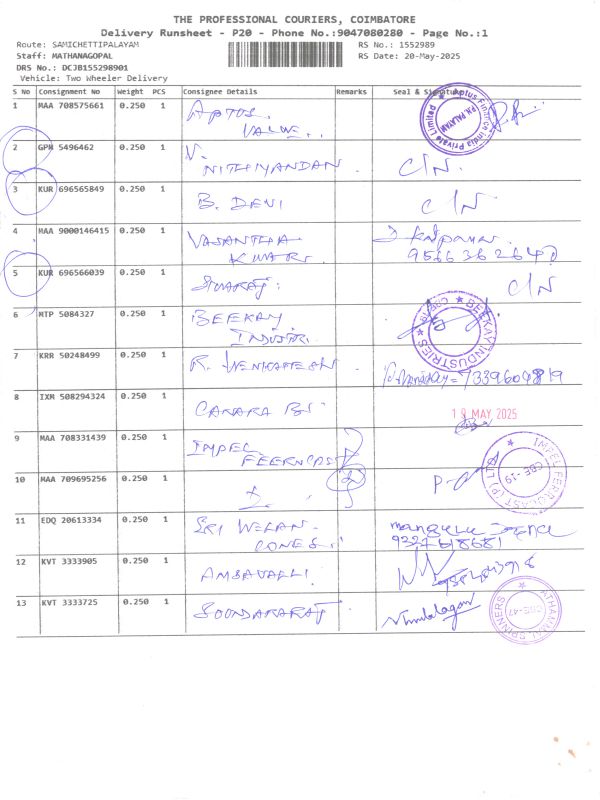 THE PROFESSIONAL COURIERS, COIMBATORE
Delivery Runsheet - P20 - Phone No.:9047080280 - Page No.:1
Route: SAMICHETTIPALAYAM RS No.: 1552989
Staff: MATHANAGOPAL RS Date: 20-May-2025
DRS No.: DCJB155298901
Vehicle: Two Wheeler Delivery
S No Consignment No Weight PCS Consignee Details Remarks Seal & Signature
1 MAA 708575661 0.250 1 APTUS VALUE Aptus Finance India Private Limited
2 GPM 5496462 0.250 1 V. NITHYANDAN C/N.
3 KUR 696565849 0.250 1 B. DEVI C/N
4 MAA 9000146415 0.250 1 VASANTHA KUMAR
5 KUR 696566039 0.250 1 C/N
6 MTP 5084327 0.250 1 BEEKAY BEEKAY INDUSTRIES
7 KRR 50248499 0.250 1 R. VENKATESH 7339604819
8 IXM 508294324 0.250 1 CANARA 19 MAY 2025
9 MAA 708331439 0.250 1 IMPEL
10 MAA 709695256 0.250 1 CBE-19
11 EDQ 20613334 0.250 1 SRI VELAN CONES
12 KVT 3333905 0.250 1 AMBAVALLI
13 KVT 3333725 0.250 1 SOONDARARAJ SPINNERS CBE-47